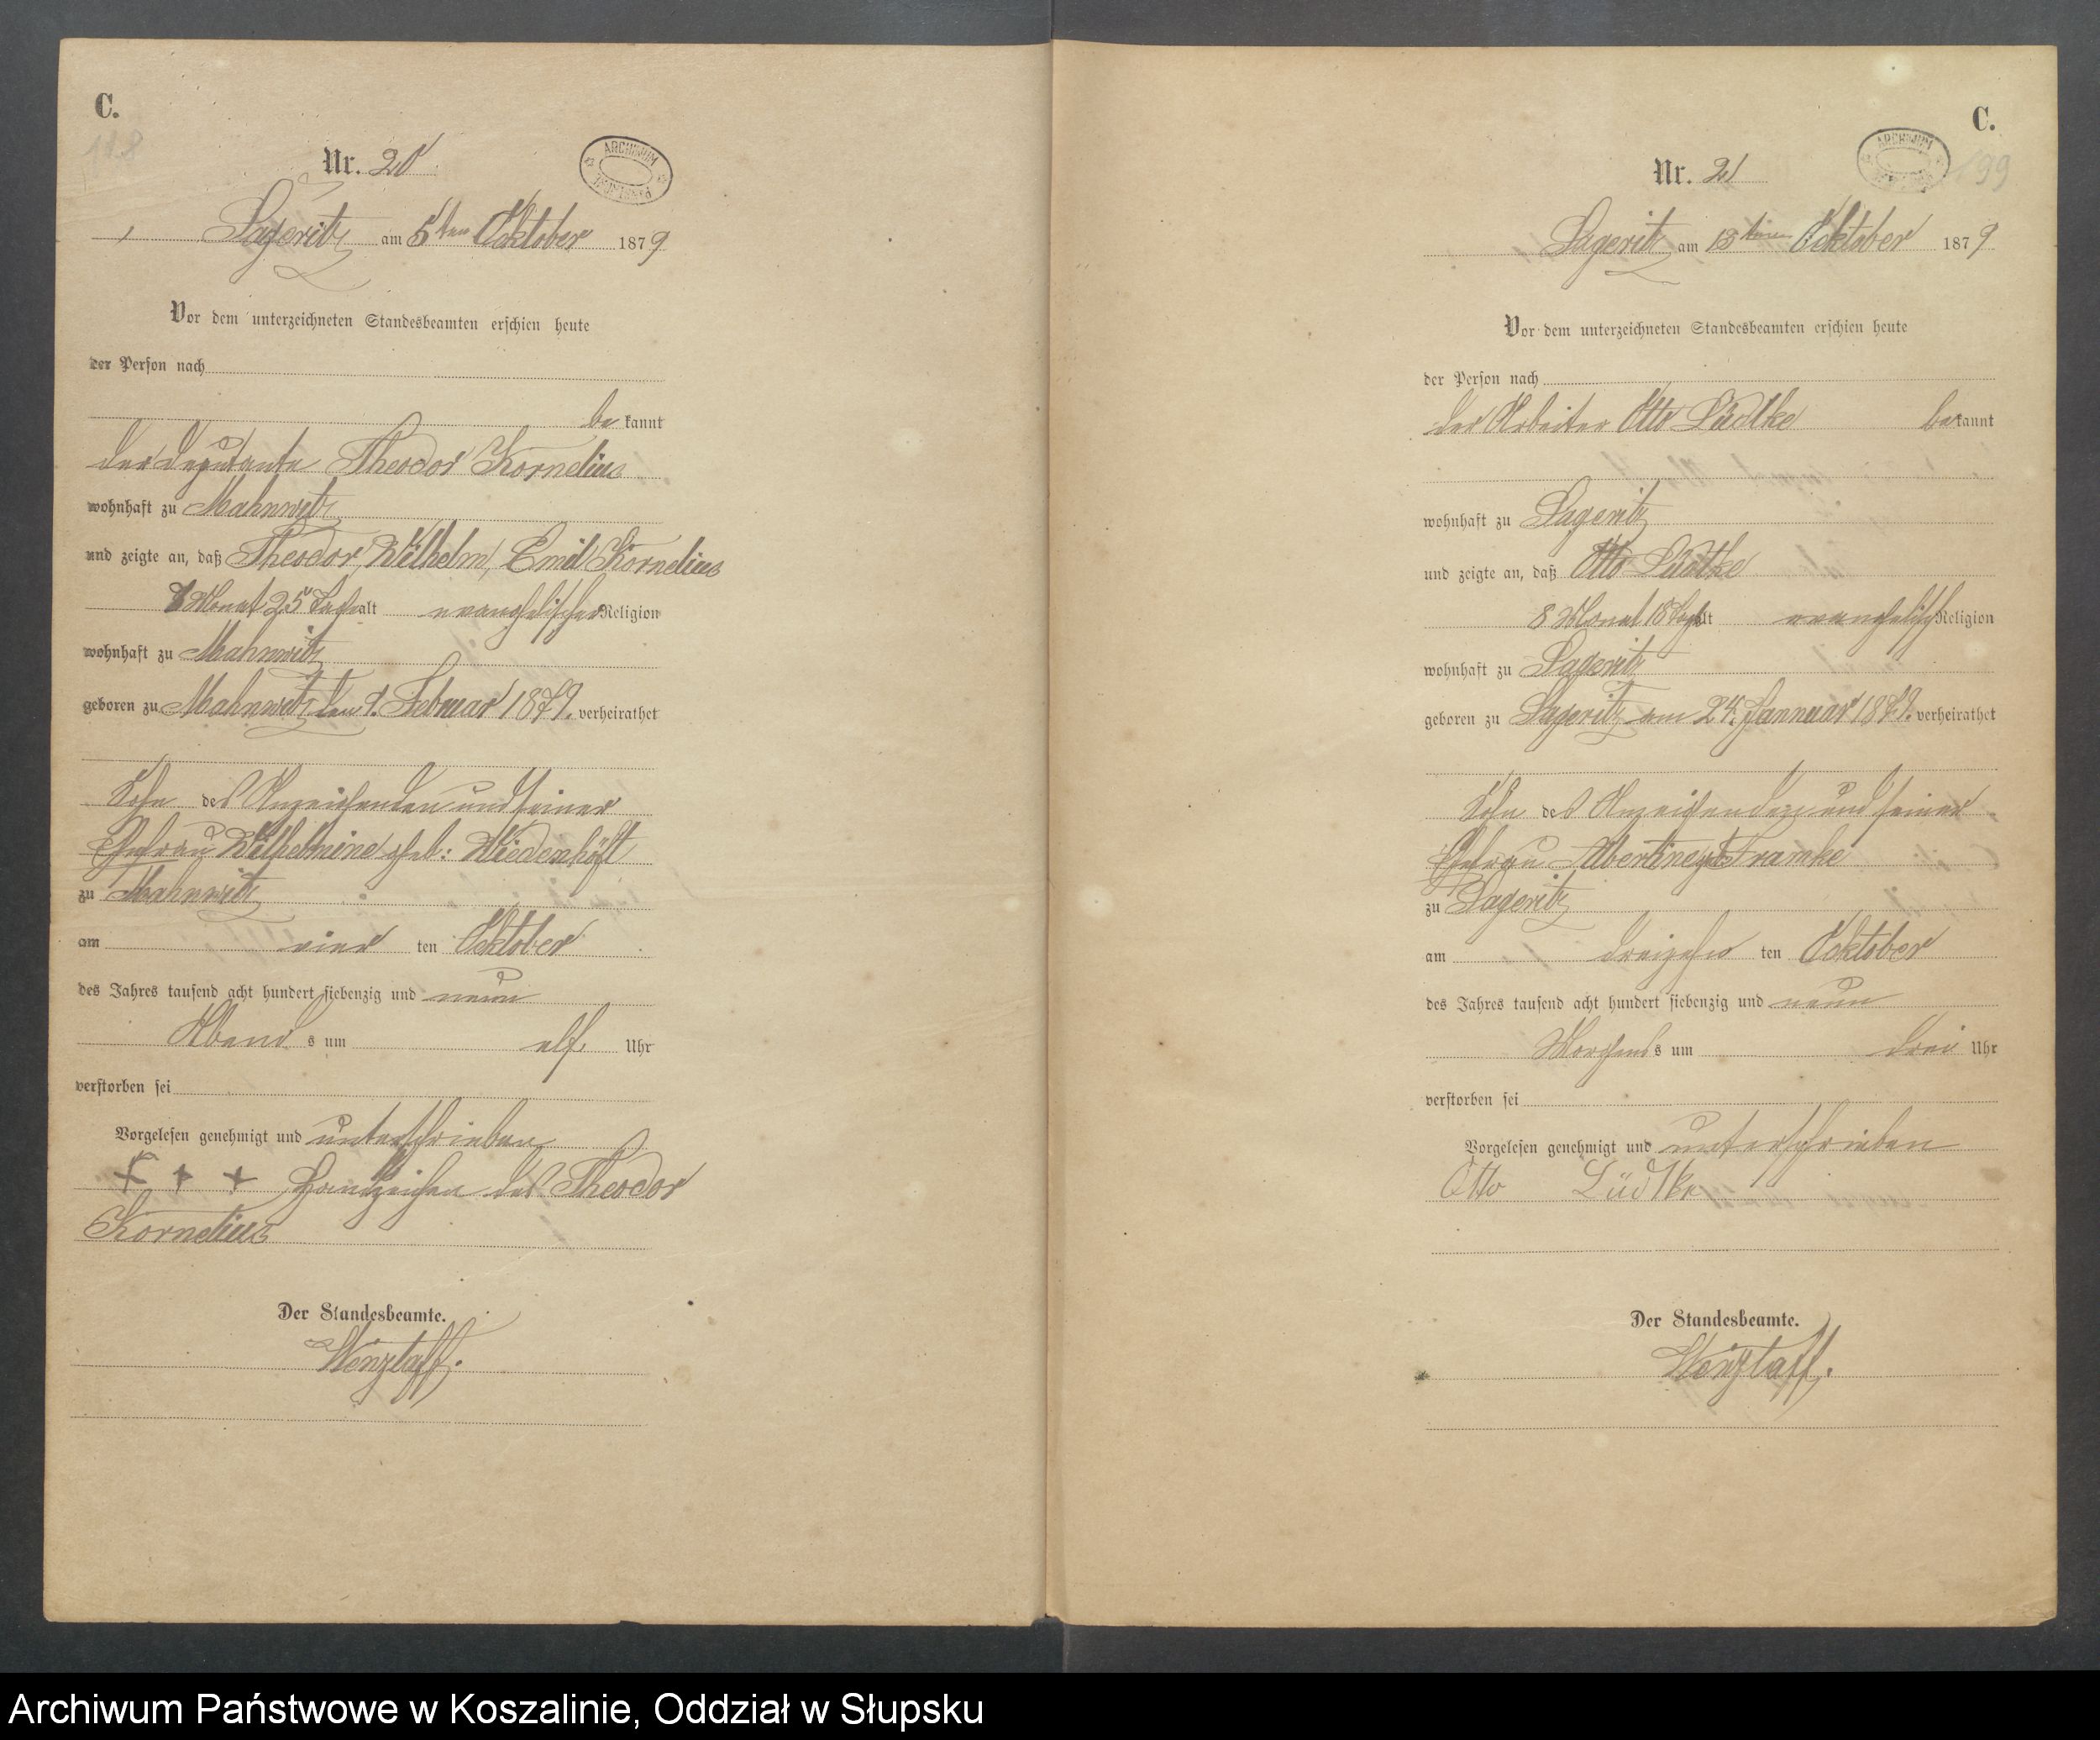 C.
198
Nr. 20
ARCHIWUM
Lageritz am 5ten Oktober 1879
Vor dem unterzeichneten Standesbeamten erschien heute
der Person nach
be kannt
der Deputante Theodor Kornelius
wohnhaft zu Mahnwitz
und zeigte an, daß Theodor, Wilhelm, Emil Kornelius
7 Monat 25 Tage alt evangelischer Religion
wohnhaft zu Mahnwitz
geboren zu Mahnwitz den 9. Februar 1879. verheirathet
Sohn des Anzeigenden und seiner
Ehefrau Wilhelmine geb: Wiedenhöft
zu Mahnwitz
am vier ten Oktober
des Jahres tausend acht hundert siebenzig und neun
Abend s um elf Uhr
verstorben sei
Vorgelesen genehmigt und unterschrieben
+ + + Handzeichen des Theodor
Kornelius
Der Standesbeamte.
C.
199
Nr. 21
ARCHIWUM
Lageritz am 13ten Oktober 1879
Vor dem unterzeichneten Standesbeamten erschien heute
der Person nach
der Arbeiter Otto Lüdtke bekannt
wohnhaft zu Lageritz
und zeigte an, daß Otto Lüdtke
8 Monat 18 Tage alt evangelisch Religion
wohnhaft zu Lageritz
geboren zu Lageritz am 24. Jannuar 1879. verheirathet
Sohn des Anzeigenden und seiner
Ehefrau Albertine geb Framke
zu Lageritz
am dreizehn ten Oktober
des Jahres tausend acht hundert siebenzig und neun
Morgends um drei Uhr
verstorben sei
Vorgelesen genehmigt und unterschrieben
Otto Lüdtke
Der Standesbeamte.
Archiwum Państwowe w Koszalinie, Oddział w Słupsku